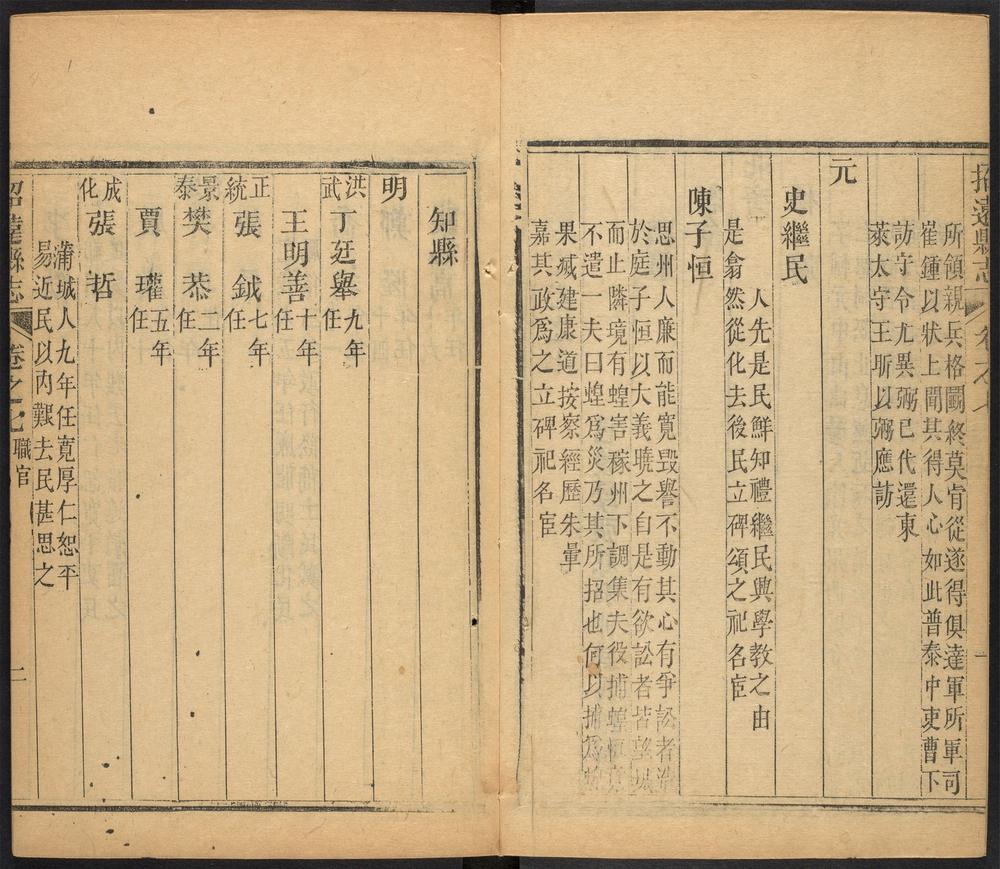 招遠縣志 卷之七 一
所領親兵格鬭終莫肯從遂得俱達軍所軍司
崔鍾以狀上聞其得人心如此普泰中吏曹下
訪守令尤異弼已代還東
萊太守王昕以弼應訪
元
史繼民
人先是民鮮知禮繼民興學教之由
是翕然從化去後民立碑頌之祀名宦
陳子恒
思州人廉而能寛毀譽不動其心有爭訟者
於庭子恒以大義曉之自是有欲訟者皆望城
而止隣境有蝗害稼州下調集夫役捕蝗恒
不遣一夫曰蝗爲災乃其所招也何以捕爲
果㓕建康道按察經歷朱暈
嘉其政爲之立碑祀名宦
知縣
明
洪武 丁廷舉 九年任
王明善 十年任
正統 張鉞 七年任
景泰 樊恭 二年任
賈瓘 五年任
成化 張哲
蒲城人九年任寛厚仁恕平
易近民以内艱去民甚思之
招遠縣志 卷之七 職官 二